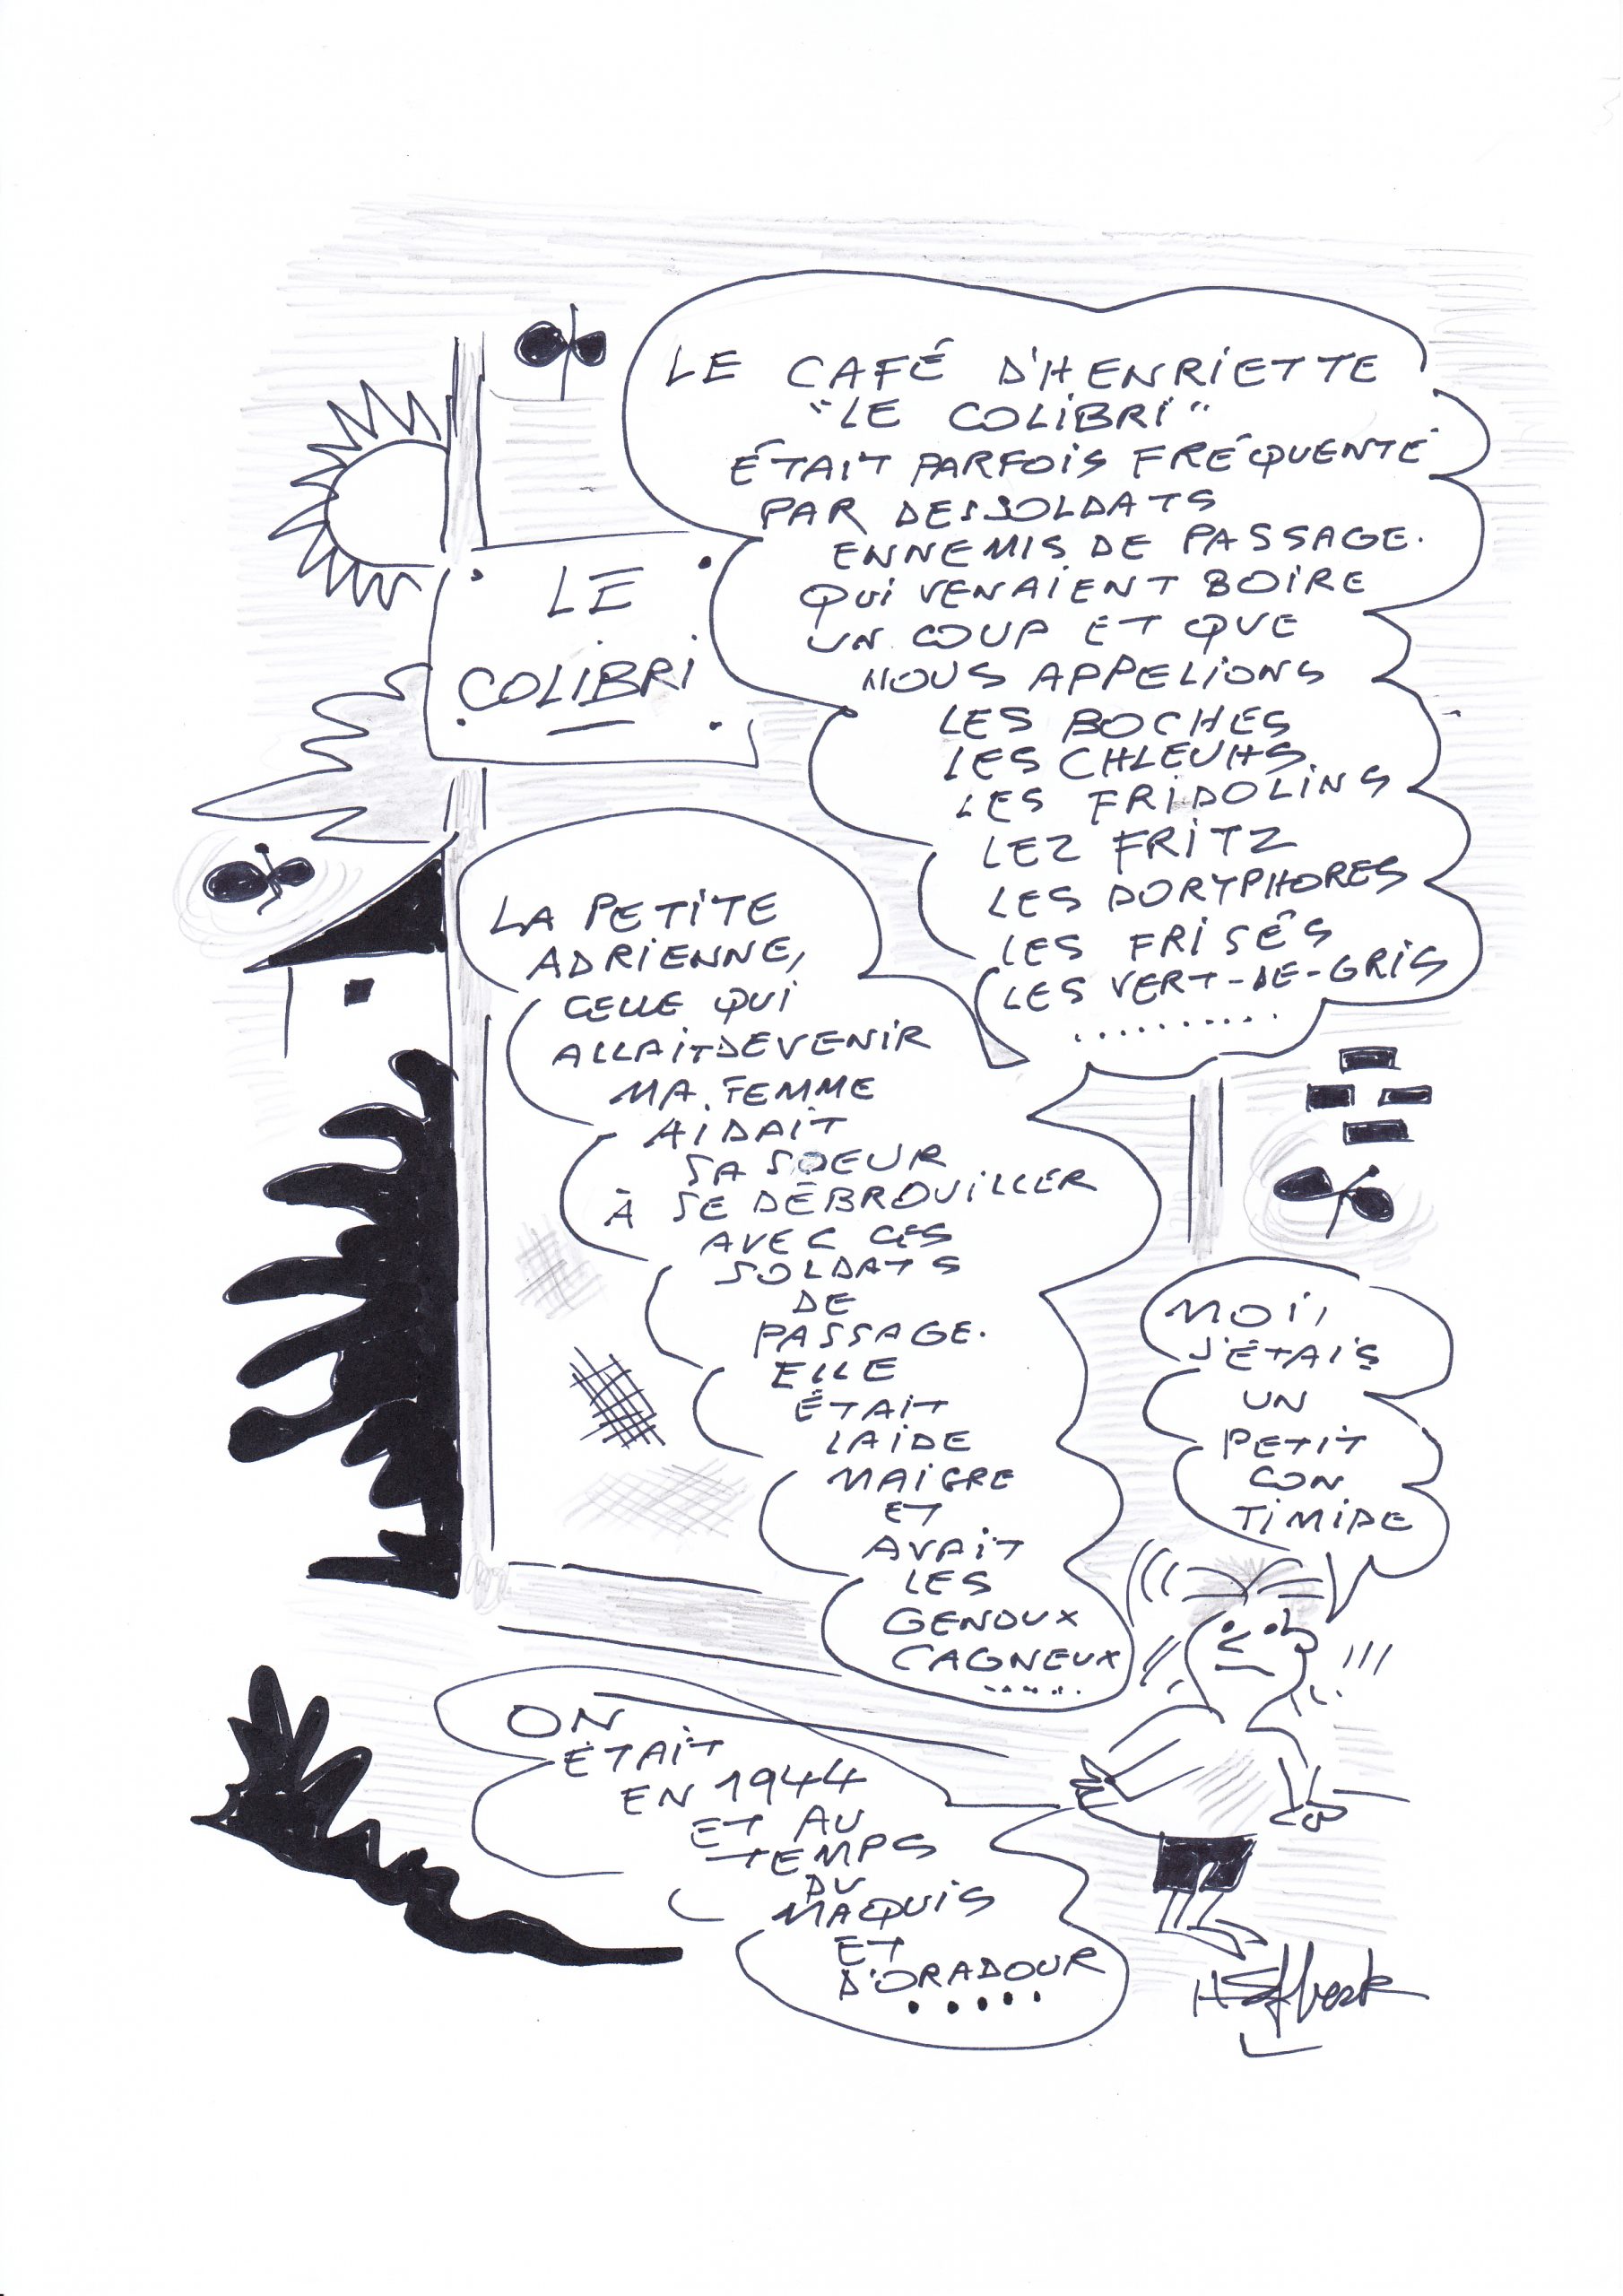 LE CAFÉ D'HENRIETTE
"LE COLIBRI"
ÉTAIT PARFOIS FRÉQUENTÉ
PAR DES SOLDATS
ENNEMIS DE PASSAGE.
QUI VENAIENT BOIRE
UN COUP ET QUE
NOUS APPELIONS
LES BOCHES
LES CHLEUHS.
LES FRIDOLINS
LEZ FRITZ
LES DORYPHORES
LES FRISÉS
LES VERT-DE-GRIS
..........
LE
COLIBRI
LA PETITE
ADRIENNE,
CELLE QUI
ALLAIT DEVENIR
MA FEMME
AIDAIT
SA SOEUR
À SE DÉBROUILLER
AVEC CES
SOLDATS
DE
PASSAGE.
ELLE
ÉTAIT
LAIDE
MAIGRE
ET
AVAIT
LES
GENOUX
CAGNEUX
......
MOI,
J'ÉTAIS
UN
PETIT
CON
TIMIDE
ON
ÉTAIT
EN 1944
ET AU
TEMPS
DU
MAQUIS
ET
D'ORADOUR
.....